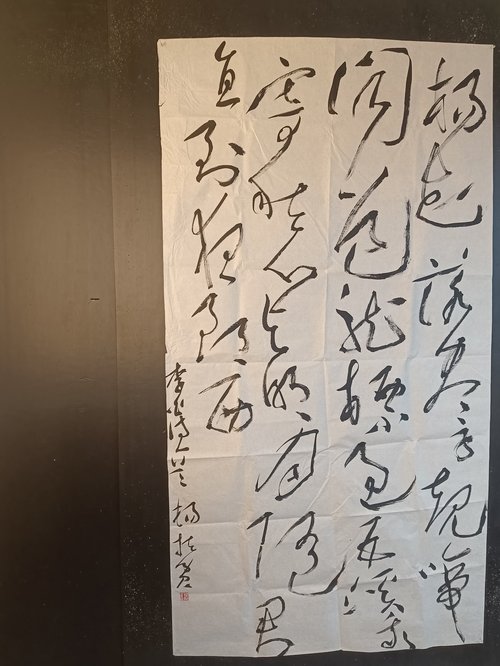 杨花落尽子规啼
闻道龙標过五溪我
寄愁心与明月随君
直到夜郎西
李白诗一首 杨